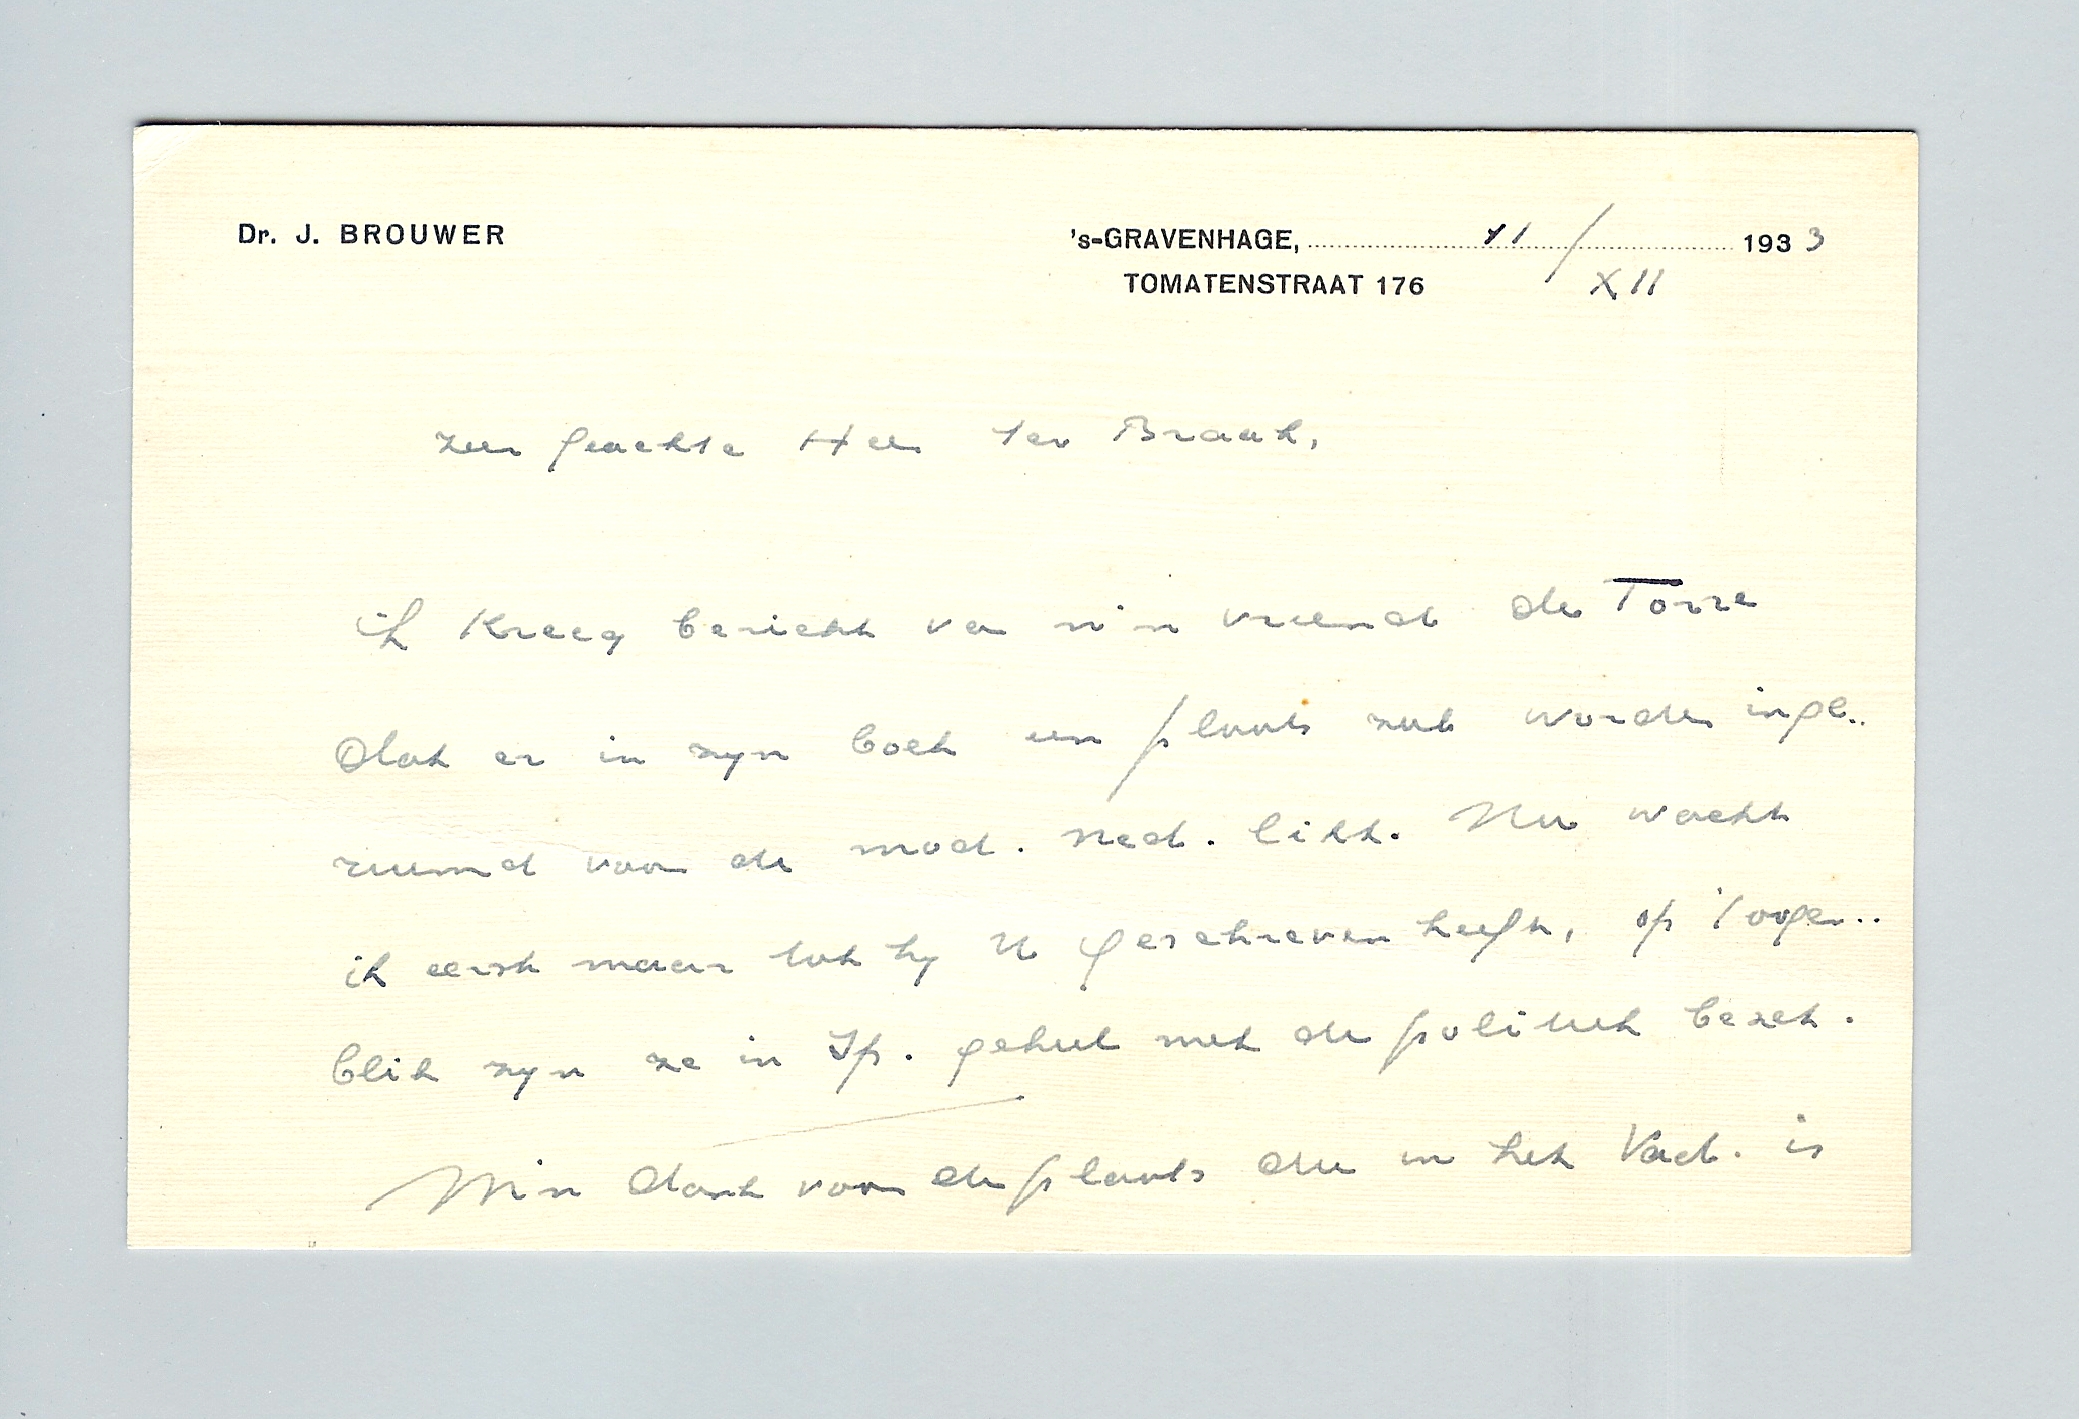 Dr. J. BROUWER
's-GRAVENHAGE, 11/XII 1933
TOMATENSTRAAT 176
zeer geachte Heer ter Braak,
ik kreeg bericht van m'n vriend de Torre
dat er in zijn boek een plaats zal worden inge..
ruimd voor de mod. ned. litt. Nu wacht
ik eerst maar tot hij U geschreven heeft, op 't oogen..
blik zijn ze in Sp. geheel met de politiek bezet.
Mijn dank voor de plaats die in het Vad. is